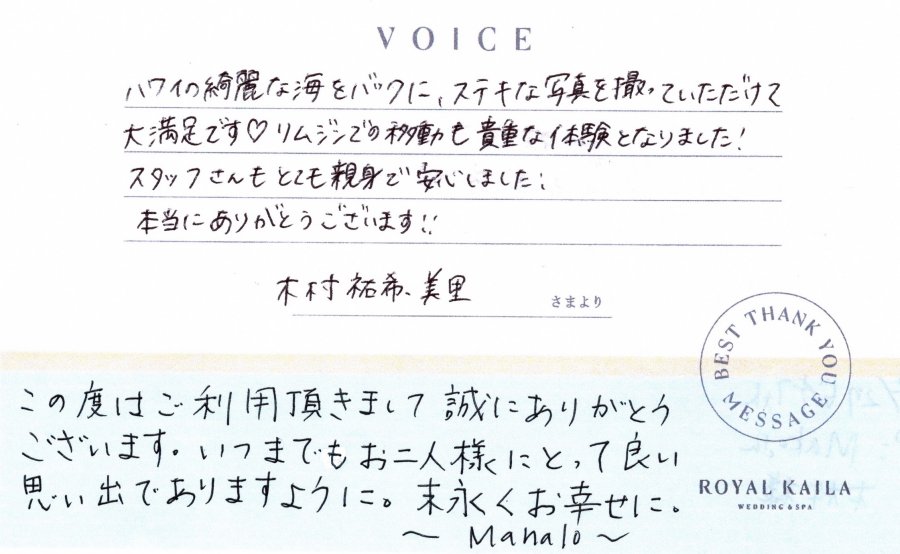 VOICE
ハワイの綺麗な海をバックに、ステキな写真を撮っていただけて
大満足です♡リムジンでの移動も貴重な体験となりました!
スタッフさんもとても親身で安心しました!
本当にありがとうございます!!
木村祐希、美里
さまより
BEST THANK YOU
MESSAGE
この度はご利用頂きまして誠にありがとう
ございます。いつまでもお二人様にとって良い
思い出でありますように。末永くお幸せに。
～ Manalo ～
ROYAL KAILA
WEDDING & SPA